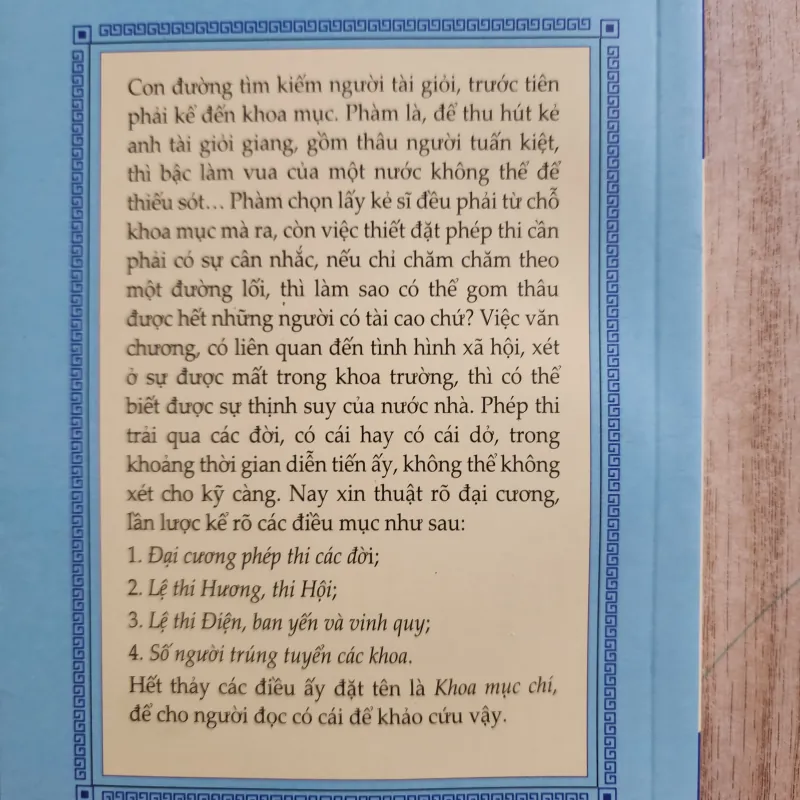 Con đường tìm kiếm người tài giỏi, trước tiên
phải kể đến khoa mục. Phàm là, để thu hút kẻ
anh tài giỏi giang, gồm thâu người tuấn kiệt,
thì bậc làm vua của một nước không thể để
thiếu sót... Phàm chọn lấy kẻ sĩ đều phải từ chỗ
khoa mục mà ra, còn việc thiết đặt phép thi cần
phải có sự cân nhắc, nếu chỉ chăm chăm theo
một đường lối, thì làm sao có thể gom thâu
được hết những người có tài cao chứ? Việc văn
chương, có liên quan đến tình hình xã hội, xét
ở sự được mất trong khoa trường, thì có thể
biết được sự thịnh suy của nước nhà. Phép thi
trải qua các đời, có cái hay có cái dở, trong
khoảng thời gian diễn tiến ấy, không thể không
xét cho kỹ càng. Nay xin thuật rõ đại cương,
lần lược kể rõ các điều mục như sau:
1. Đại cương phép thi các đời;
2. Lệ thi Hương, thi Hội;
3. Lệ thi Điện, ban yến và vinh quy;
4. Số người trúng tuyển các khoa.
Hết thảy các điều ấy đặt tên là Khoa mục chí,
để cho người đọc có cái để khảo cứu vậy.